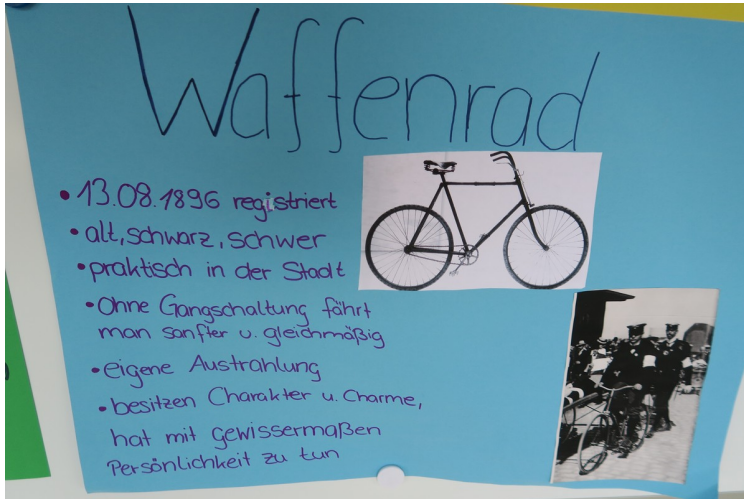 Waffenrad
• 13.08.1896 registriert
• alt, schwarz, schwer
• praktisch in der Stadt
• Ohne Gangschaltung fährt
man sanfter u. gleichmäßig
• eigene Austrahlung
• besitzen Charakter u. Charme,
hat mit gewissermaßen
Persönlichkeit zu tun